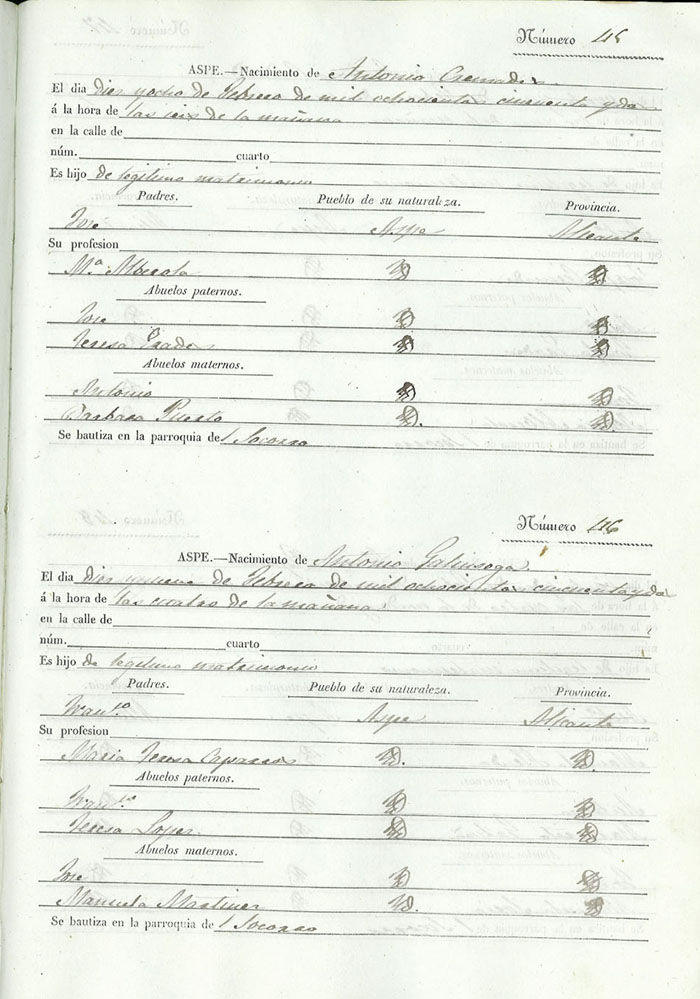 Número 45
ASPE.—Nacimiento de Antonio Cremades
El dia diez y ocho de Febrero de mil ochocientos cincuenta y dos
á la hora de las seis de la mañana
en la calle de
núm. cuarto
Es hijo de legitimo matrimonio
Padres. Pueblo de su naturaleza. Provincia.
Jose Aspe Alicante
Su profesion
Mª
Abuelos paternos.
Jose
Teresa Prades
Abuelos maternos.
Antonio
Barbara Puerto
Se bautiza en la parroquia del Socorro
Número 46
ASPE.—Nacimiento de Antonio Galinsoga
El dia diez nueve de Febrero de mil ochocientos cincuenta y dos
á la hora de las cuatro de la mañana
en la calle de
núm. cuarto
Es hijo de legitimo matrimonio
Padres. Pueblo de su naturaleza. Provincia.
Franco Aspe Alicante
Su profesion
Maria Teresa Caparros
Abuelos paternos.
Franco
Teresa Lopez
Abuelos maternos.
Jose
Manuela Martinez
Se bautiza en la parroquia del Socorro